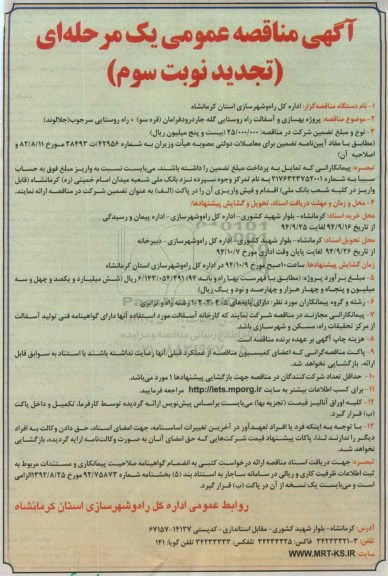 آگهی مناقصه عمومی یک مرحله‌ای
(تجدید نوبت سوم)
۱- نام دستگاه مناقصه‌گزار: اداره کل راه‌وشهرسازی استان کرمانشاه
۲- موضوع مناقصه: پروژه بهسازی و آسفالت راه روستایی گله جاردرودفرامان (قره سو) + راه روستایی سرجوب(جلالوند)
۳- نوع و مبلغ تضمین شرکت در مناقصه: ۲۵/۰۰۰/۰۰۰ (بیست و پنج میلیون ریال)
(مطابق با مفاد آیین‌نامه تضمین برای معاملات دولتی مصوبه هیأت وزیران به شماره ۴۲۹۵۶/ت ۲۸۴۹۳ مورخ ۸۲/۸/۱۱ و
اصلاحیه آن)
تبصره: پیمانکارانی که تمایل به پرداخت مبلغ تضمین را داشته باشند، می‌بایست نسبت به واریز مبلغ فوق به حساب
سیبا به شماره ۲۱۷۶۴۳۳۷۵۲۰۰۱ به نام تمرکز وجوه سپرده نزد بانک ملی شعبه میدان امام خمینی (ره) کرمانشاه (قابل
واریز در کلیه شعب بانک ملی) اقدام و فیش واریزی آن را در پاکت (الف) به عنوان تضمین شرکت در مناقصه ارائه نمایند.
۴- محل و زمان و مهلت دریافت اسناد، تحویل و گشایش پیشنهادها:
محل خرید اسناد: کرمانشاه- بلوار شهید کشوری- اداره کل راه‌وشهرسازی- اداره پیمان و رسیدگی
از تاریخ ۹۴/۹/۱۶ لغایت ۹۴/۹/۲۵
محل تحویل اسناد: کرمانشاه- بلوار شهید کشوری- اداره کل راه‌وشهرسازی- دبیرخانه
از تاریخ ۹۴/۹/۲۶ لغایت پایان وقت اداری مورخ ۹۴/۱۰/۷
زمان گشایش پیشنهادها: ساعت ۱۰صبح مورخ ۹۴/۱۰/۹ در اداره کل راه‌وشهرسازی استان کرمانشاه
۵- مبلغ برآورد پروژه: (مطابق با فهرست بها راه و باند ۹۴) ۶/۱۴۳/۰۵۴/۴۹۱ ریال (شش میلیارد و یکصد و چهل و سه
میلیون و پنجاه و چهار هزار و چهارصد و نود و یک ریال)
۶- رشته و گروه پیمانکاران مورد نظر: دارای پایه‌های ۵-۴-۳-۲-۱ رشته راه و ترابری
۷- پیمانکارانی مجازند در مناقصه شرکت نمایند که کارخانه آسفالت مورد استفاده آنها دارای گواهینامه فنی تولید آسفالت
از مرکز تحقیقات راه، مسکن و شهرسازی باشد.
۸- هزینه چاپ آگهی بر عهده برنده مناقصه است.
۹- پاکت مناقصه‌گرانی که اعضای کمیسیون مناقصه از عملکرد قبلی آنها رضایت نداشته باشند با استناد به سوابق قابل
ارائه، بازگشایی نخواهد شد.
۱۰- حداقل تعداد شرکت‌کنندگان در مناقصه جهت بازگشایی پیشنهادها ۱ مورد می‌باشد.
۱۱- برای کسب اطلاعات بیشتر به سایت http://iets.mporg.ir مراجعه فرمایید.
۱۲- کلیه اوراق آنالیز قیمت (تجزیه بها) می‌بایست براساس پیش‌نویس ارائه گردیده توسط کارفرما، تکمیل و داخل پاکت
(ب) قرار گیرد.
۱۳- با توجه به اینکه فرد یا افراد تعهدآور در آخرین تغییرات اساسنامه، جهت امضای اسناد، حق دادن وکالت به افراد
دیگر را ندارند لذا، پاکات پیشنهاد قیمت شرکت‌هایی که حق امضای آنان به صورت وکالت‌نامه ارایه گردیده، بازگشایی
نخواهد شد.
تبصره: جهت دریافت اسناد مناقصه ارائه درخواست کتبی به انضمام گواهینامه صلاحیت پیمانکاری و مستندات مربوط به
ثبت اطلاعات ظرفیت کاری و ریالی در سامانه ساجار به استناد بند (۵) بخشنامه شماره ۹۲/۷۵۸۷۳ مورخ ۱۳۹۲/۸/۲۵الزامی
است و می‌بایست یک نسخه از آن در پاکت (ب) قرار گیرد.
روابط عمومی اداره کل راه‌وشهرسازی استان کرمانشاه
آدرس: کرمانشاه- بلوار شهید کشوری- مقابل استانداری- کدپستی ۱۴۱۳۷-۶۷۱۵۷
تلفن: ۳-۳۴۲۳۳۳۲۱ فاکس: ۳۴۲۳۳۳۲۵ تلفکس: ۳۴۲۳۳۳۳۳ تلفن گویا: ۱۴۱
سایت: WWW.MRT-KS.IR